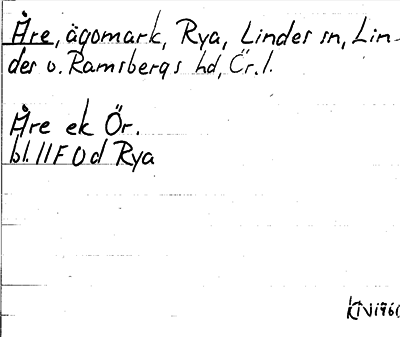 Åre, ägomark, Rya, Lindes sn, Lin-
des o. Ramsbergs hd, Ör. l.
Åre ek Ör.
bl. 11F 0d Rya
KN 1960